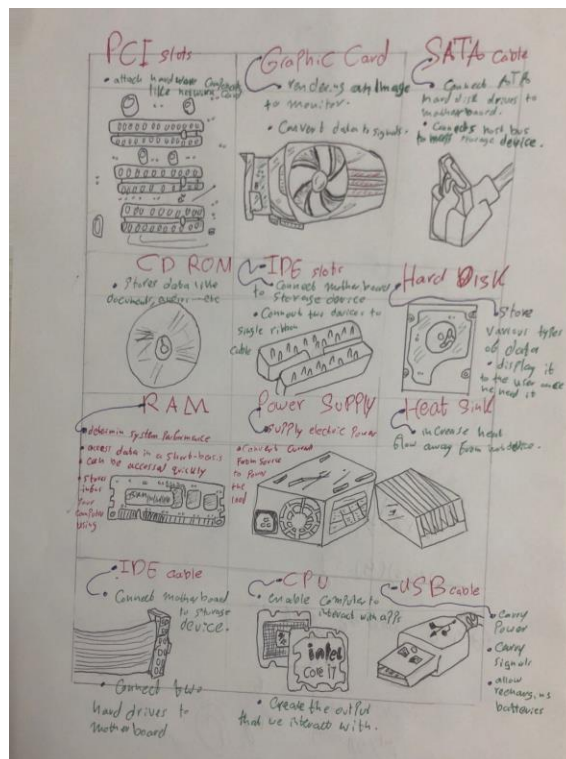 PCI slots
• attach hardware components
like network card
Graphic Card
• rendering an Image
to monitor.
• Convert data to signals.
SATA cable
• Connect ATA
hard disk drives to
motherboard.
• Connects host bus
to mass storage device.
CD ROM
• Stores data like
documents, audio...etc
IDE slots
• Connect motherboard
to storage device
• Connect two devices to
single ribbon
cable
Hard Disk
• Store
various types
of data
• display it
to the user once
he need it
RAM
• determin system performance
• access data in a short-basis
• can be accessed quickly
• stores
infor
your
computer
using
Power Supply
• supply electric power
• Convert current
from source
to Power
the
load
Heat Sink
• increase heat
flow away from
IDE cable
• Connect motherboard
to storage
device.
• Connect two
hard drives to
motherboard
CPU
• enable computer to
interact with apps
intel
Core i7
• Create the output
that we interact with.
USB cable
• carry
Power
• carry
signals
• allow
recharging
batteries